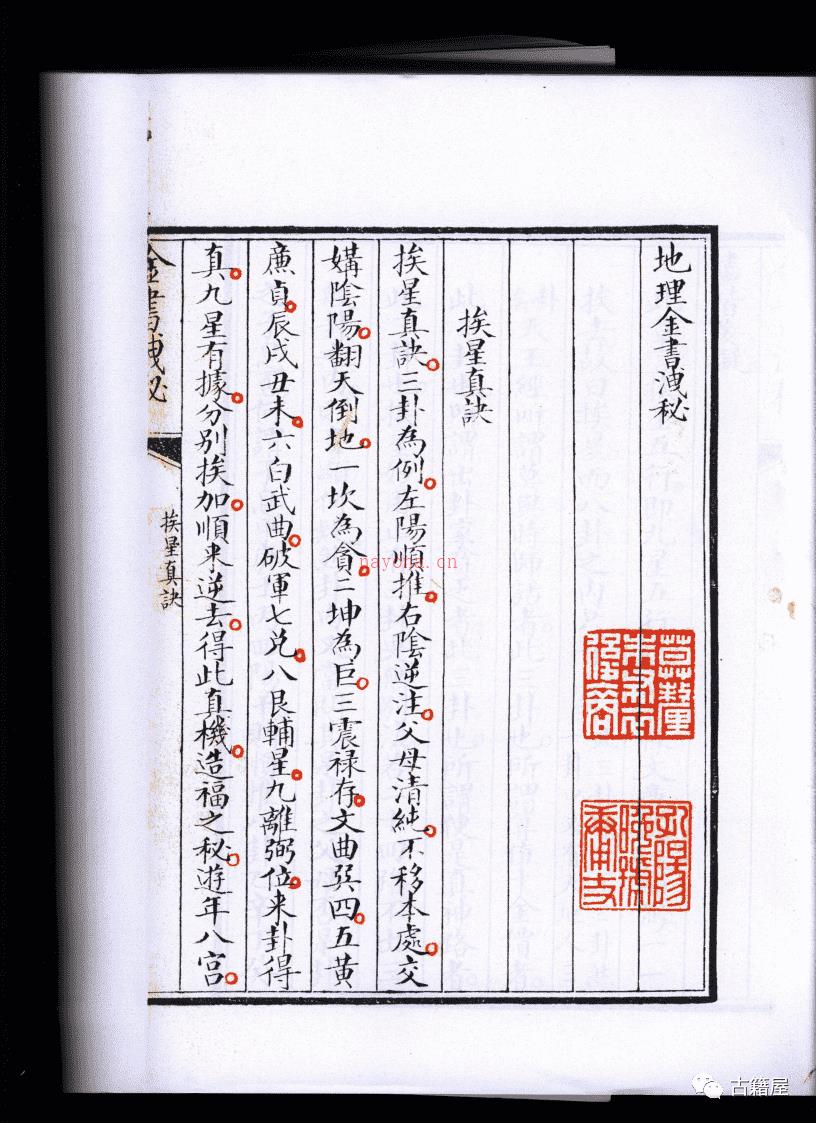 地理金書洩秘
挨星真訣
挨星真訣三卦為例左陽順推右陰逆注父母清純不移本處交
媾陰陽翻天倒地一坎為貪二坤為巨三震禄存文曲巽四五黃
廉貞辰戌丑未六白武曲破軍七兌八艮輔星九離弼位来卦得
真九星有據分別挨加順来逆去得此真機造福之秘遊年八宮
金書洩秘
挨星真訣
nayona.cn
古籍屋